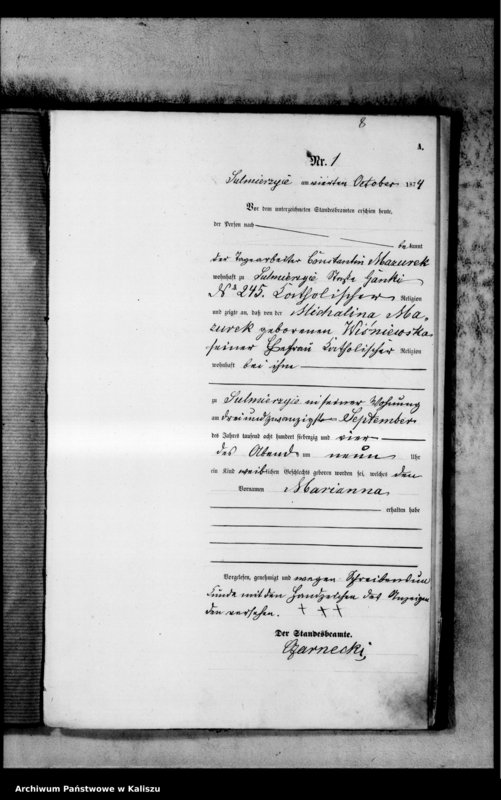 8
A.
Nr. 1
Sulmierzyce am vierten October 1874
Vor dem unterzeichneten Standesbeamten erschien heute,
der Person nach
be kannt
der Tagearbeiter Constantin Mazurek
wohnhaft zu Sulmierzyce
№ 245. Katholischer Religion
und zeigte an, daß von der Michalina Ma-
zurek geborenen Wiśniewska
seiner Ehefrau Katholischer Religion
wohnhaft bei ihm
zu Sulmierzyce in seiner Wohnung
am dreiundzwanzigsten September
des Jahres tausend acht hundert siebenzig und vier
des Abend um neun Uhr
ein Kind weiblichen Geschlechts geboren worden sei, welches den
Vornamen Marianna
erhalten habe
Vorgelesen, genehmigt und wegen Schreibensun
kunde mit den Handzeichen des Anzeigen
den versehen. † † †
Der Standesbeamte.
Czarnecki
Archiwum Państwowe w Kaliszu